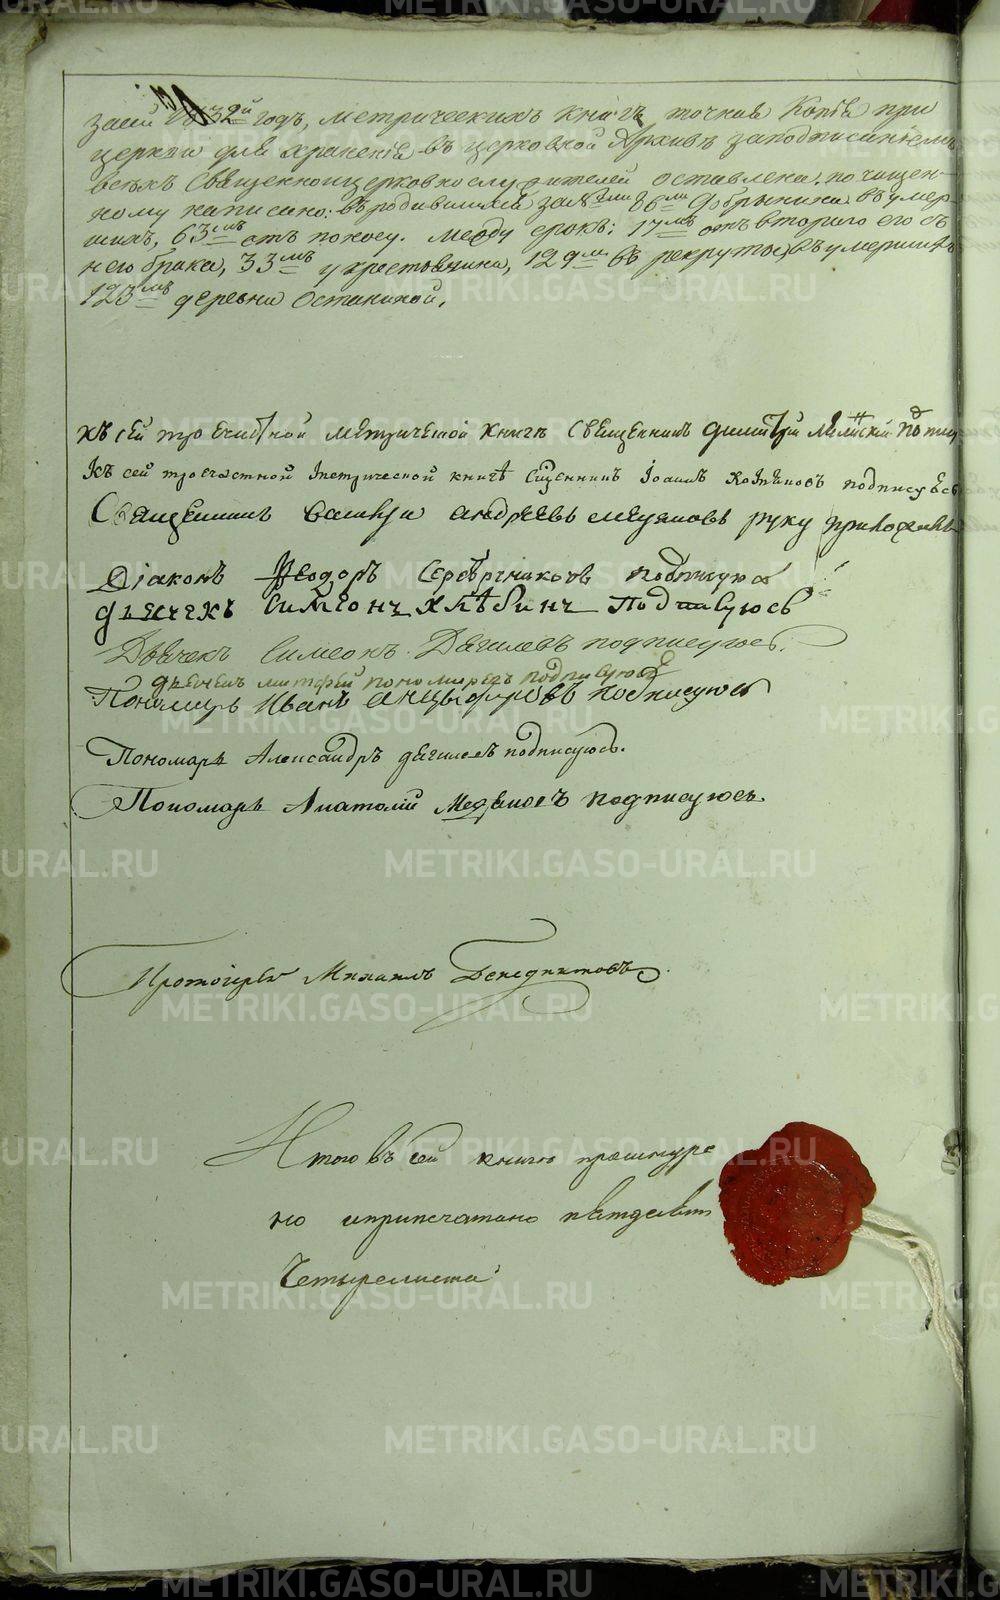 за сей 1832й годъ, метрическихъ книгъ точная Копія при
церкви для храненія въ церковной Архивъ за подписаніемъ
всѣхъ Священноцерковнослужителей оставлена. по чищен-
ному написано: въ родившихся за 86м Добрынина въ умер-
шихъ, 63мъ отъ поносу. между строкъ: 17мъ отъ втораго его съ
нею брака, 33мъ у крестовкина, 129м въ рекрутохъ умершихъ
123мъ деревни Останиной.
Къ сей троечастной метрической книгѣ Священникъ Димитрій подпису
Къ сей троечастной метрической книгѣ Сщенникъ Іоаннъ подписуюсь
Священникъ Василій Андреевъ руку приложилъ
Діаконъ Феодоръ Серебрениковъ подписуюсь
дьячекъ Симеонъ Хлѣбинъ подписуюсь
Дьячекъ Симеонъ Дягилевъ подписуюсь.
дьячекъ подписуюсь
Пономарь Иванъ Анцыферовъ подписуюсь
Пономарь Александръ дягилевъ подписуюсь.
Пономарь Анатолій подписуюсь.
Протоіерей Михаилъ Бенедиктовъ
Итого въ сей книгѣ прошнуре
но и припечатано пятдесятъ
Четыре листа
METRIKI.GASO-URAL.RU